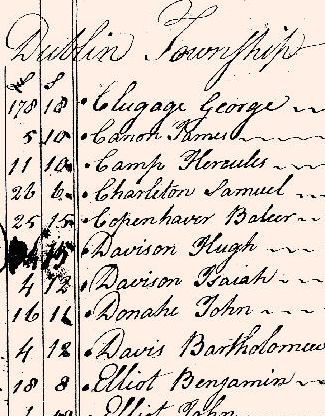 Dublin Township
178 18 Clugage George
5 10 Canon James
11 10 Camp Hercules
26 6 Charleton Samuel
25 15 Copenhaver Baker
15 Davison Hugh
4 12 Davison Isaiah
16 11 Donahe John
4 12 Davis Bartholomew
18 8 Elliot Benjamin
Elliot John